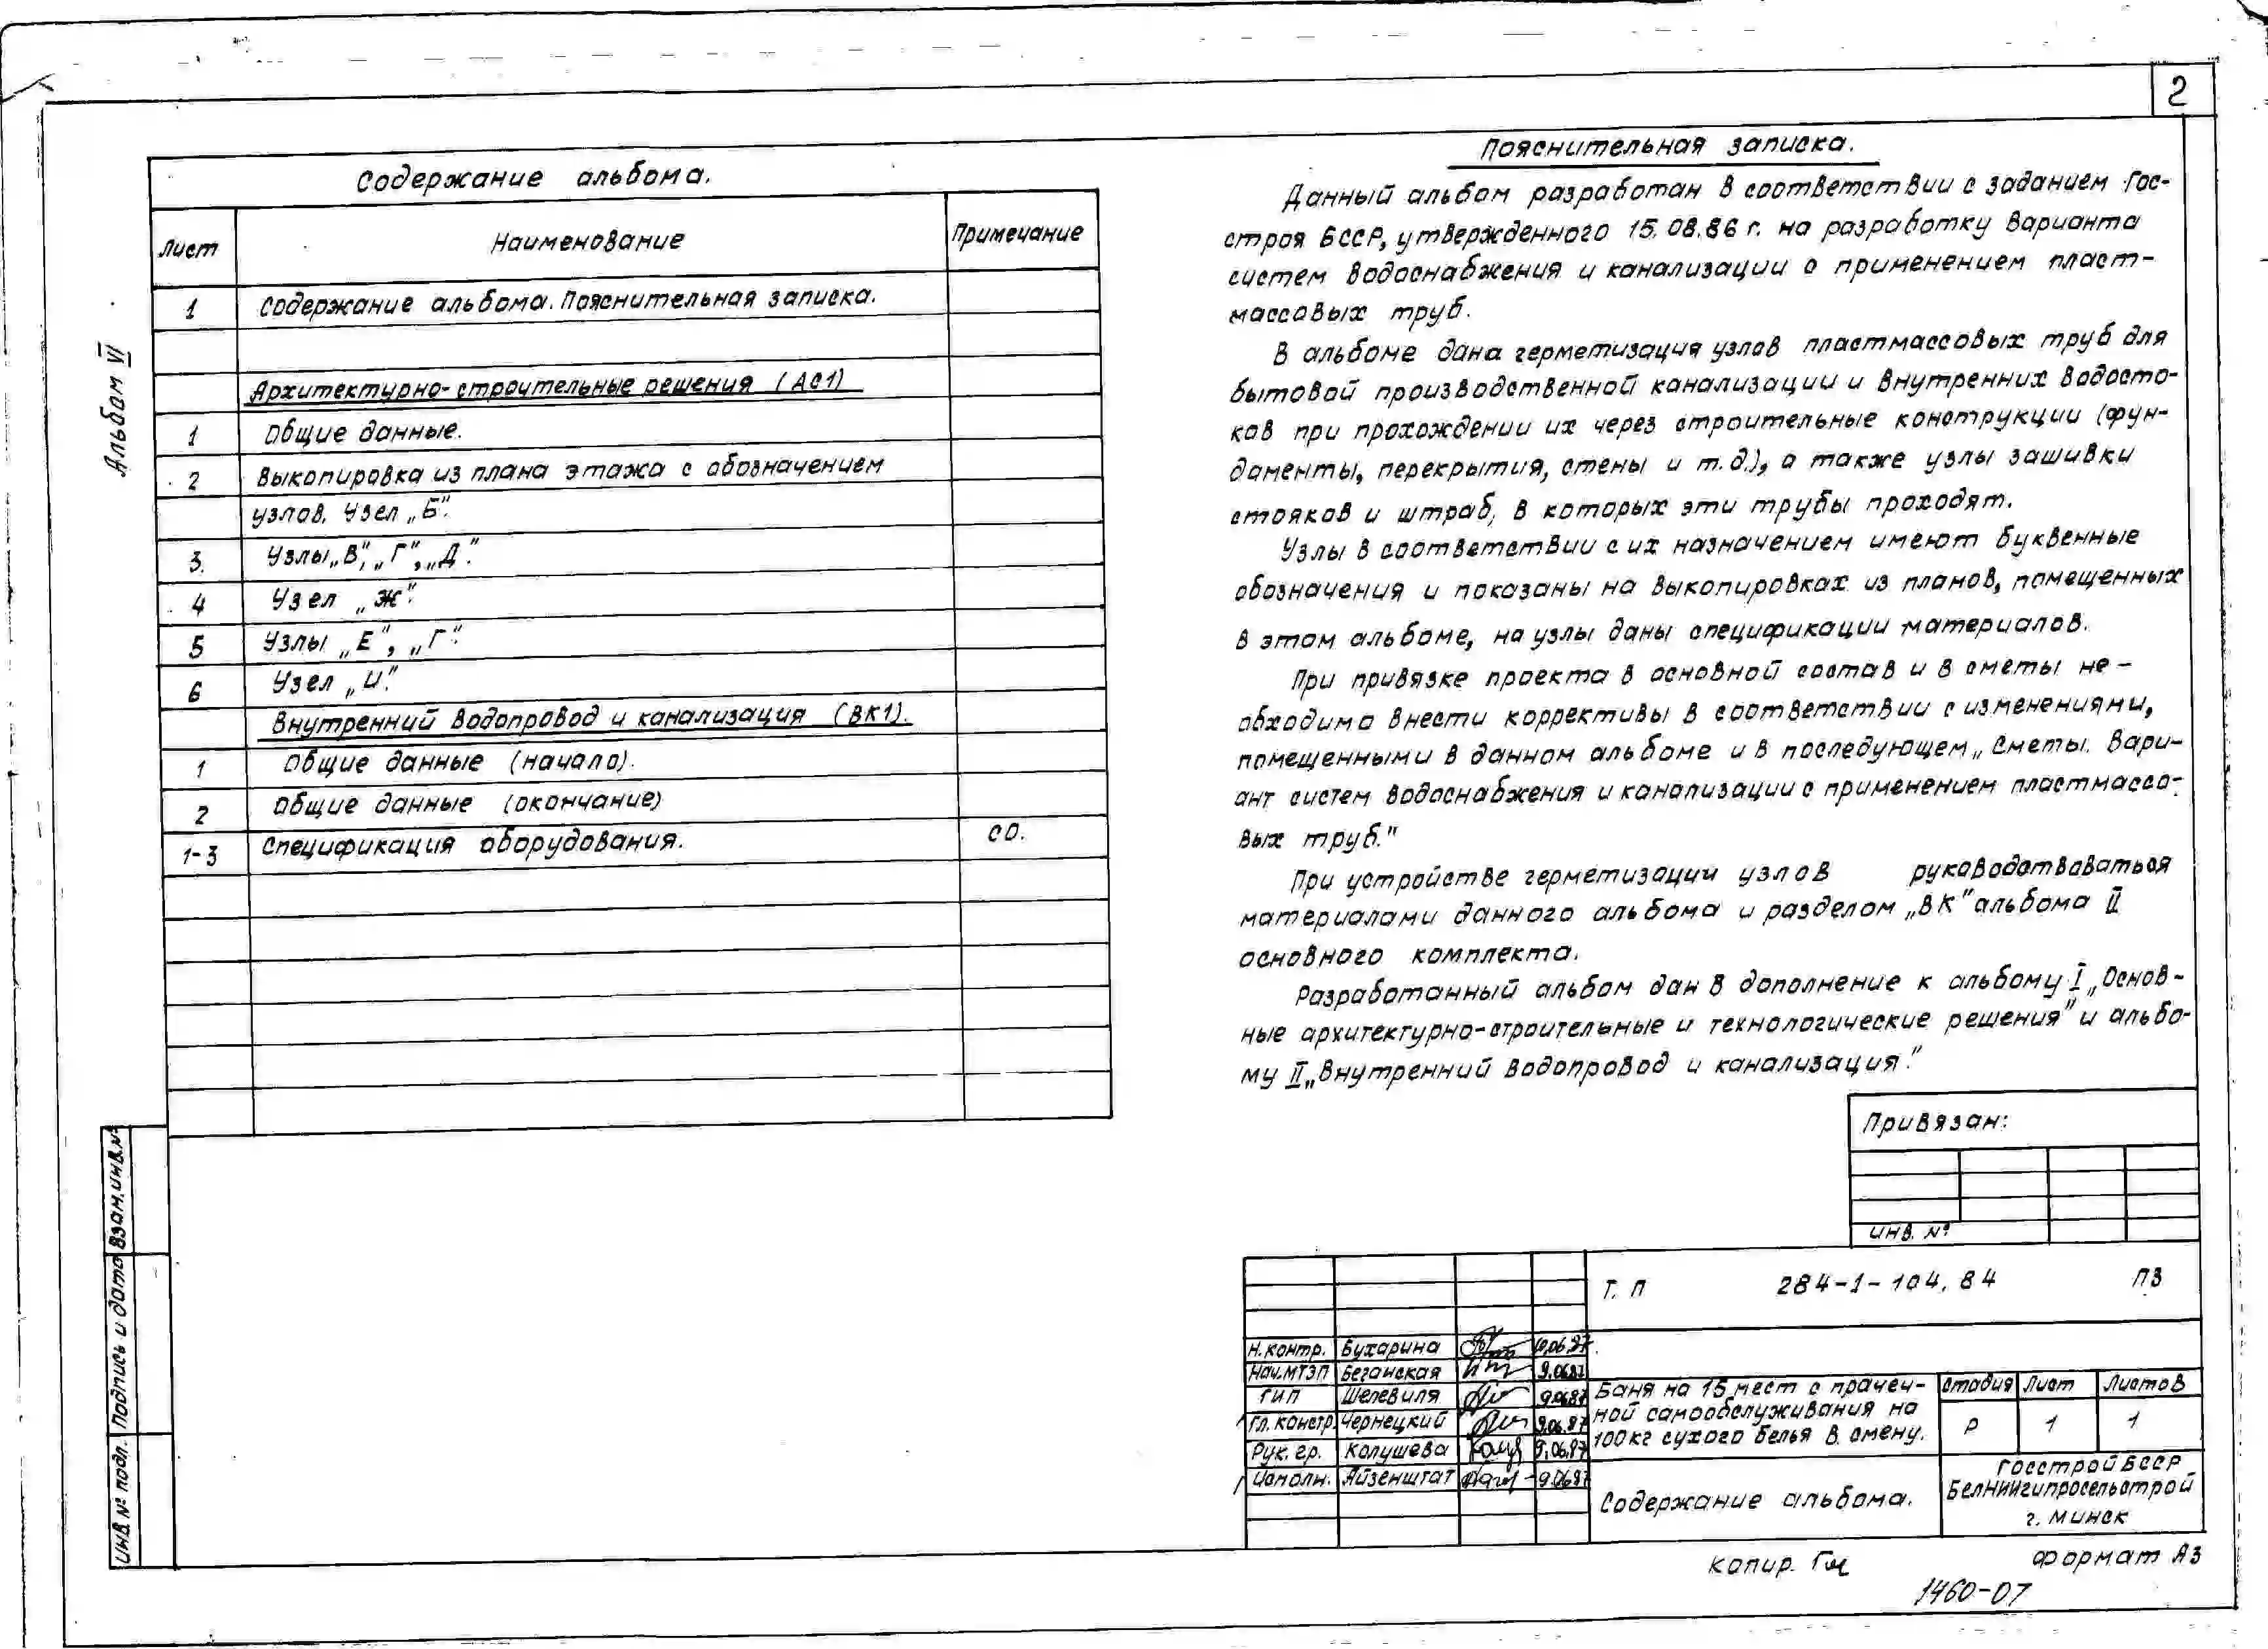 2
Альбом VI
Содержание альбома.
Лист Наименование Примечание
1 Содержание альбома. Пояснительная записка.
Архитектурно-строительные решения (АС1)
1 Общие данные.
2 Выкопировка из плана этажа с обозначением
узлов. Узел „Б".
3. Узлы „В", „Г", „Д".
4 Узел „Ж".
5 Узлы „Е", „Г".
6 Узел „И".
Внутренний водопровод и канализация (ВК1).
1 Общие данные (начало).
2 Общие данные (окончание)
1-3 Спецификация оборудования. СО.
Пояснительная записка.
Данный альбом разработан в соответствии с заданием Гос-
строя БССР, утвержденного 15.08.86 г. на разработку варианта
систем водоснабжения и канализации с применением пласт-
массовых труб.
В альбоме дана герметизация узлов пластмассовых труб для
бытовой производственной канализации и внутренних водосто-
ков при прохождении их через строительные конструкции (фун-
даменты, перекрытия, стены и т.д.), а также узлы зашивки
стояков и штраб, в которых эти трубы проходят.
Узлы в соответствии с их назначением имеют буквенные
обозначения и показаны на выкопировках из планов, помещенных
в этом альбоме, на узлы даны спецификации материалов.
При привязке проекта в основной состав и в сметы не-
обходимо внести коррективы в соответствии с изменениями,
помещенными в данном альбоме и в последующем „Сметы. Вари-
ант систем водоснабжения и канализации с применением пластмассо-
вых труб."
При устройстве герметизации узлов руководствоваться
материалами данного альбома и разделом „ВК" альбома II
основного комплекта.
Разработанный альбом дан в дополнение к альбому I „Основ-
ные архитектурно-строительные и технологические решения" и альбо-
му II „Внутренний водопровод и канализация".
Привязан:
инв. №
Т. П 284-1-104.84 ПЗ
Н. контр. Бухарина 10.06.87
Нач.МТЭП Беганская 9.06.87
ГИП Шелевиля 9.06.87
Гл. констр. Чернецкий 9.06.87
Рук. гр. Колушева 9.06.87
Исполн. Айзенштат 9.06.87
Баня на 15 мест с прачеч-
ной самообслуживания на
100кг сухого белья в смену.
Стадия Лист Листов
Р 1 1
Содержание альбома.
Госстрой БССР
БелНИИгипросельстрой
г. Минск
Взам.инв.№
Подпись и дата
Инв. № подл.
Копир. Формат А3
1460-07